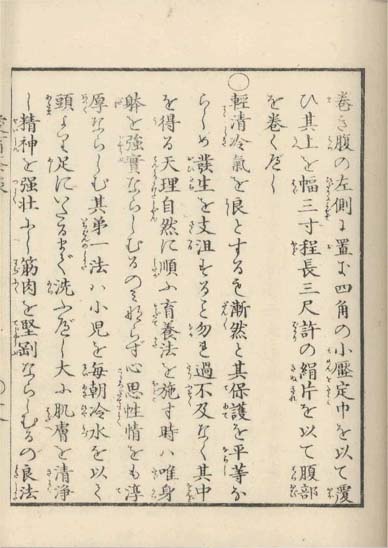 巻き腹の左側に置き四角の小壓定巾を以て覆
ひ其上を幅三寸程長三尺許の絹片を以て腹部
を巻くべし
○輕清冷氣を良とする を漸然と其保護を平等な
らしめ發生を支沮することと勿れ過不及なく其中
を得る天理自然に順ふ育養法を施す時ハ唯身
躰を強實ならしむるのみならず心思性情をも淳
厚ならしむ其第一法ハ小児を毎朝冷水を以て
頭より足にいたるまで洗ふべし大ふ肌膚を清浄
し精神を强壮ふし筋肉を堅剛ならしむるの良法